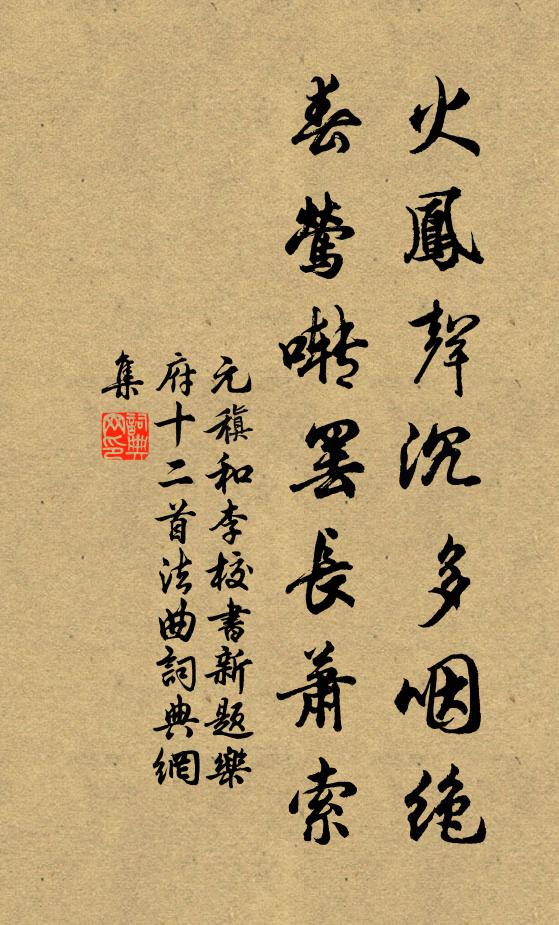 火鳳聲沉多咽絶
春鶯囀罷長蕭索
元稹和李校書新題樂
府十二首法曲詞典網
集
詞典網印